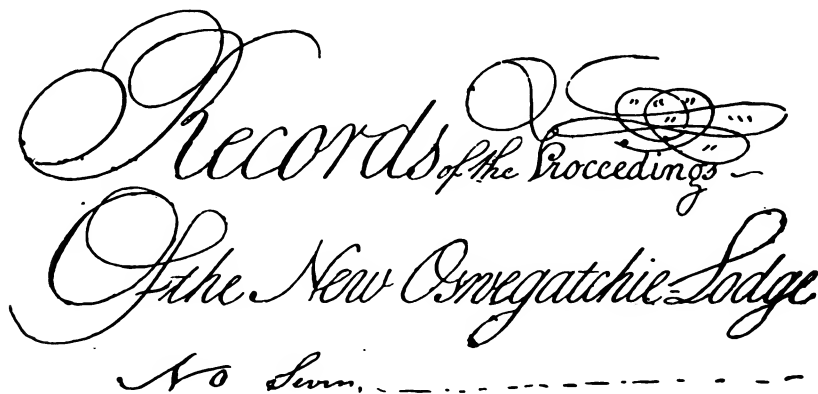 Records of the Proccedings
Of the New Oswegatchie=Lodge
No Seven.